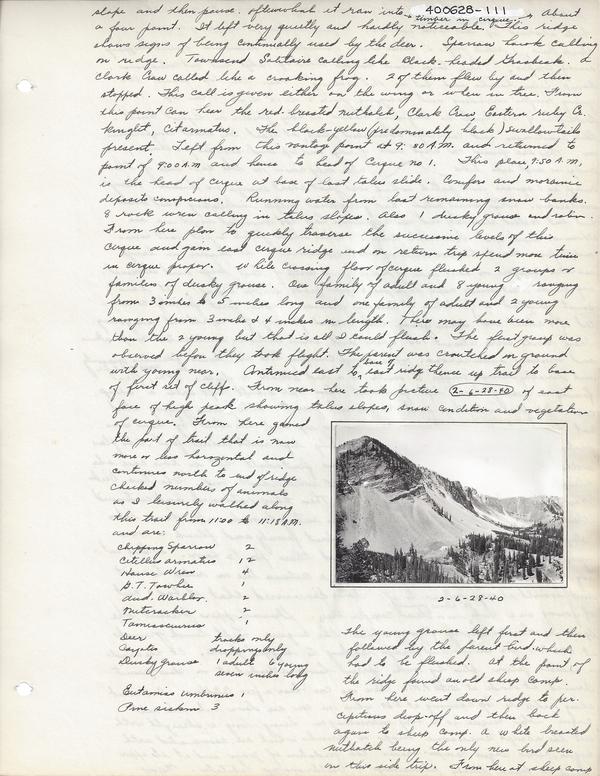 400628-111
slope and then pause. after what it ran into timber in cirque. About
a four point. It left very quietly and hardly noticeable. This ridge
shows signs of being continually used by the deer. Sparrow hawk calling
on ridge. Townsend Solitaire calling like Black-headed Grosbeak. &
Clark Crow called like a croaking frog. 2 of them flew by and then
stopped. This call is given either on the wing or when in tree. From
this point can hear the red-breasted nuthatch, Clark Crow, Eastern ruby Cr.
kinglet, Cit. armatus. The black-yellow (predominately black) swallowtails
present. Left from this vantage point at 9:30 A.M. and returned to
point of 9:00 A.M and hence to head of Cirque no 1. This place, 9:50 A.M.
is the head of cirque at base of last talus slide. Conifers and morainic
deposits conspicuous. Running water from last remaining snow banks.
& rock wren calling in talus slopes. Also 1 dusky grouse and robin.
From here plan to quickly traverse the successive levels of this
cirque and gain east cirque ridge and on return trip spend more time
in cirque proper. While crossing floor of cirque flushed 2 groups or
families of dusky grouse. One family of adult and 8 young ranging
from 3 inches to 5 inches long and one family of adult and 2 young
ranging from 3 inches & 4 inches in length. There may have been more
than the 2 young but that is all I could flush. The first group was
observed before they took flight. The parent was crouched on ground
with young near. Continued east to base of east ridge thence up trail to base
of first set of cliffs. From near here took picture 2-6-28-40 of east
face of high peak showing talus slopes, snow condition and vegetation
of cirque. From here gained
the part of trail that is now
more or less horizontal and
continues north to end of ridge
Checked numbers of animals
as I leisurely walked along
this trail from 11:00 to 11:18 A.M.
and are:
Chipping Sparrow 2
Citellus armatus 12
House Wren 4
G.T. Towhee 1
Aud. Warbler 2
Nutcracker 2
Tamiasciurus 1
Deer tracks only
Coyotes droppings only
Dusky grouse 1 adult 6 young
seven inches long
Eutamias umbrinus 1
Pine siskin 3
2-6-28-40
The young grouse left first and then
followed by the parent bird which
had to be flushed. At the point of
the ridge found an old sheep camp.
From here went down ridge to per-
cipitous drop-off and then back
again to sheep camp. A white breasted
nuthatch being the only new bird seen
on this side trip. From here at sheep camp